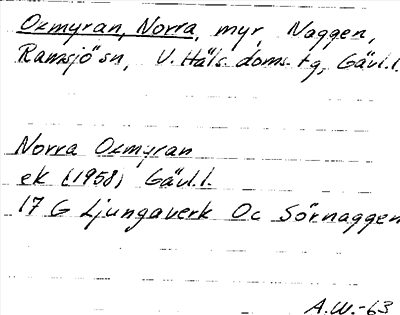 Oxmyran, Norra, myr, Naggen,
Ramsjö sn, V. Häls. doms. tg, Gävl.l.
Norra Oxmyran
ek (1958) Gävl.l.
17 G Ljungaverk Oc Sörnaggen
A.W.-63